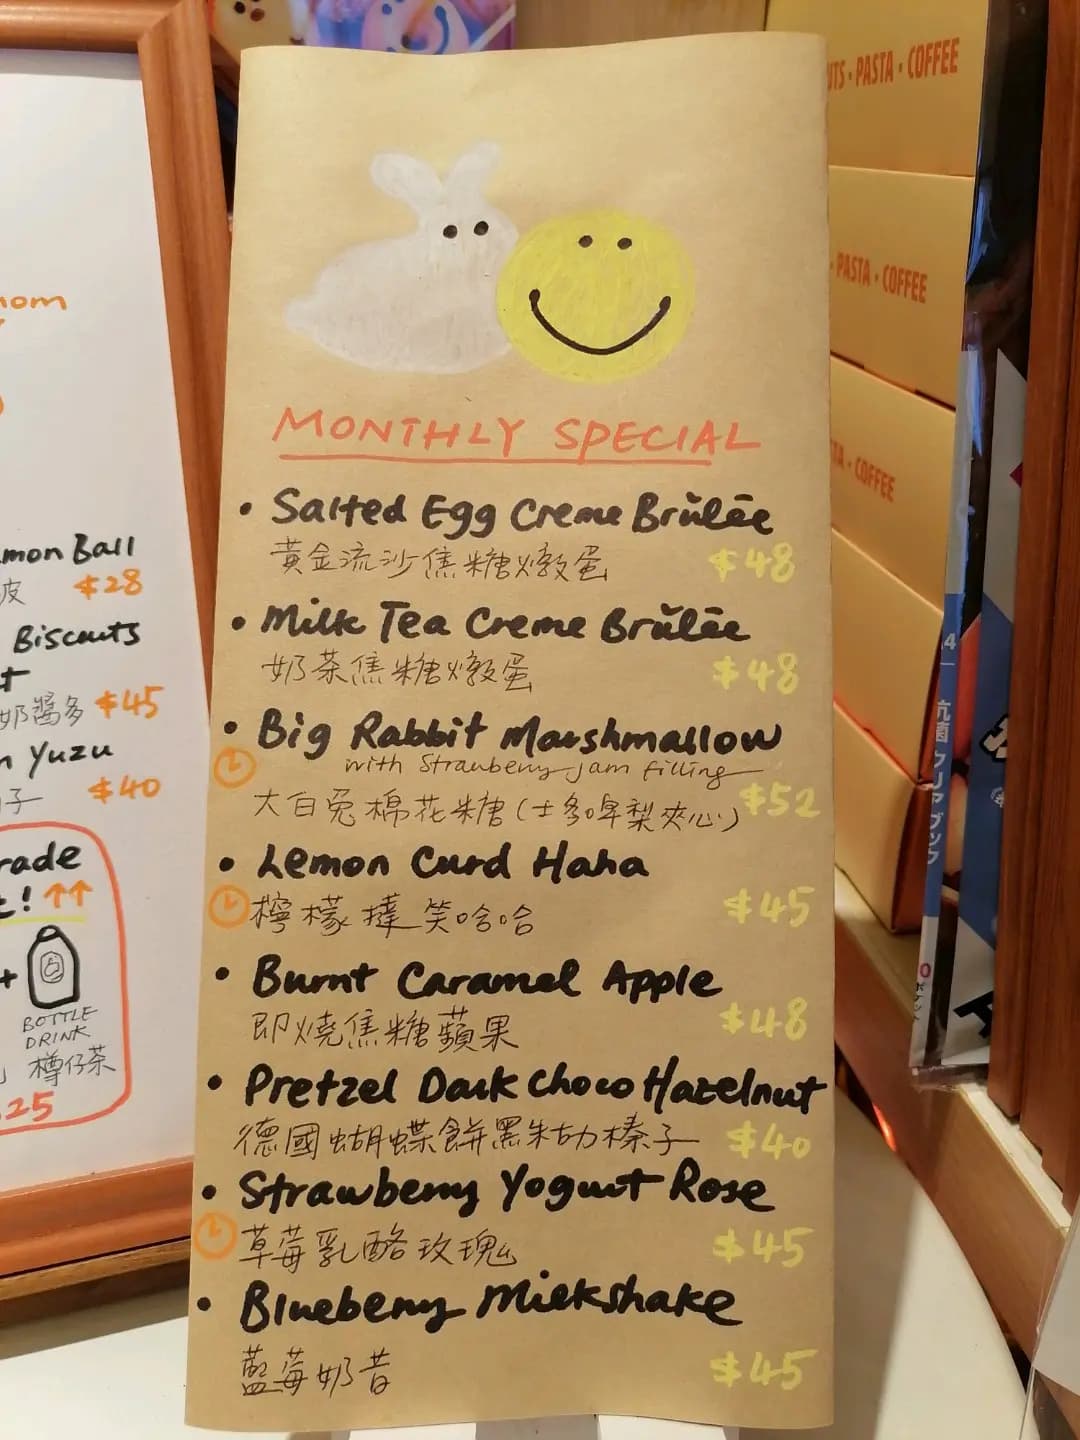 MONTHLY SPECIAL
• Salted Egg Creme Brûlée
黃金流沙焦糖燉蛋 $48
• Milk Tea Creme Brûlée
奶茶焦糖燉蛋 $48
• Big Rabbit Marshmallow
with Strawberry jam filling
大白兔棉花糖(士多啤梨夾心) $52
• Lemon Curd Haha
檸檬撻笑哈哈 $45
• Burnt Caramel Apple
即燒焦糖蘋果 $48
• Pretzel Dark Choco Hazelnut
德國蝴蝶餅黑朱古力榛子 $40
• Strawberry Yogurt Rose
草莓乳酪玫瑰 $45
• Blueberry Milkshake
藍莓奶昔 $45
mon Ball
皮 $28
Biscuits
奶醬多 $45
Yuzu
子 $40
rade
! ↑↑
+
BOTTLE
DRINK
樽仔茶
.25
UTS • PASTA • COFFEE
• PASTA • COFFEE
TA • COFFEE
抗菌クリアブック